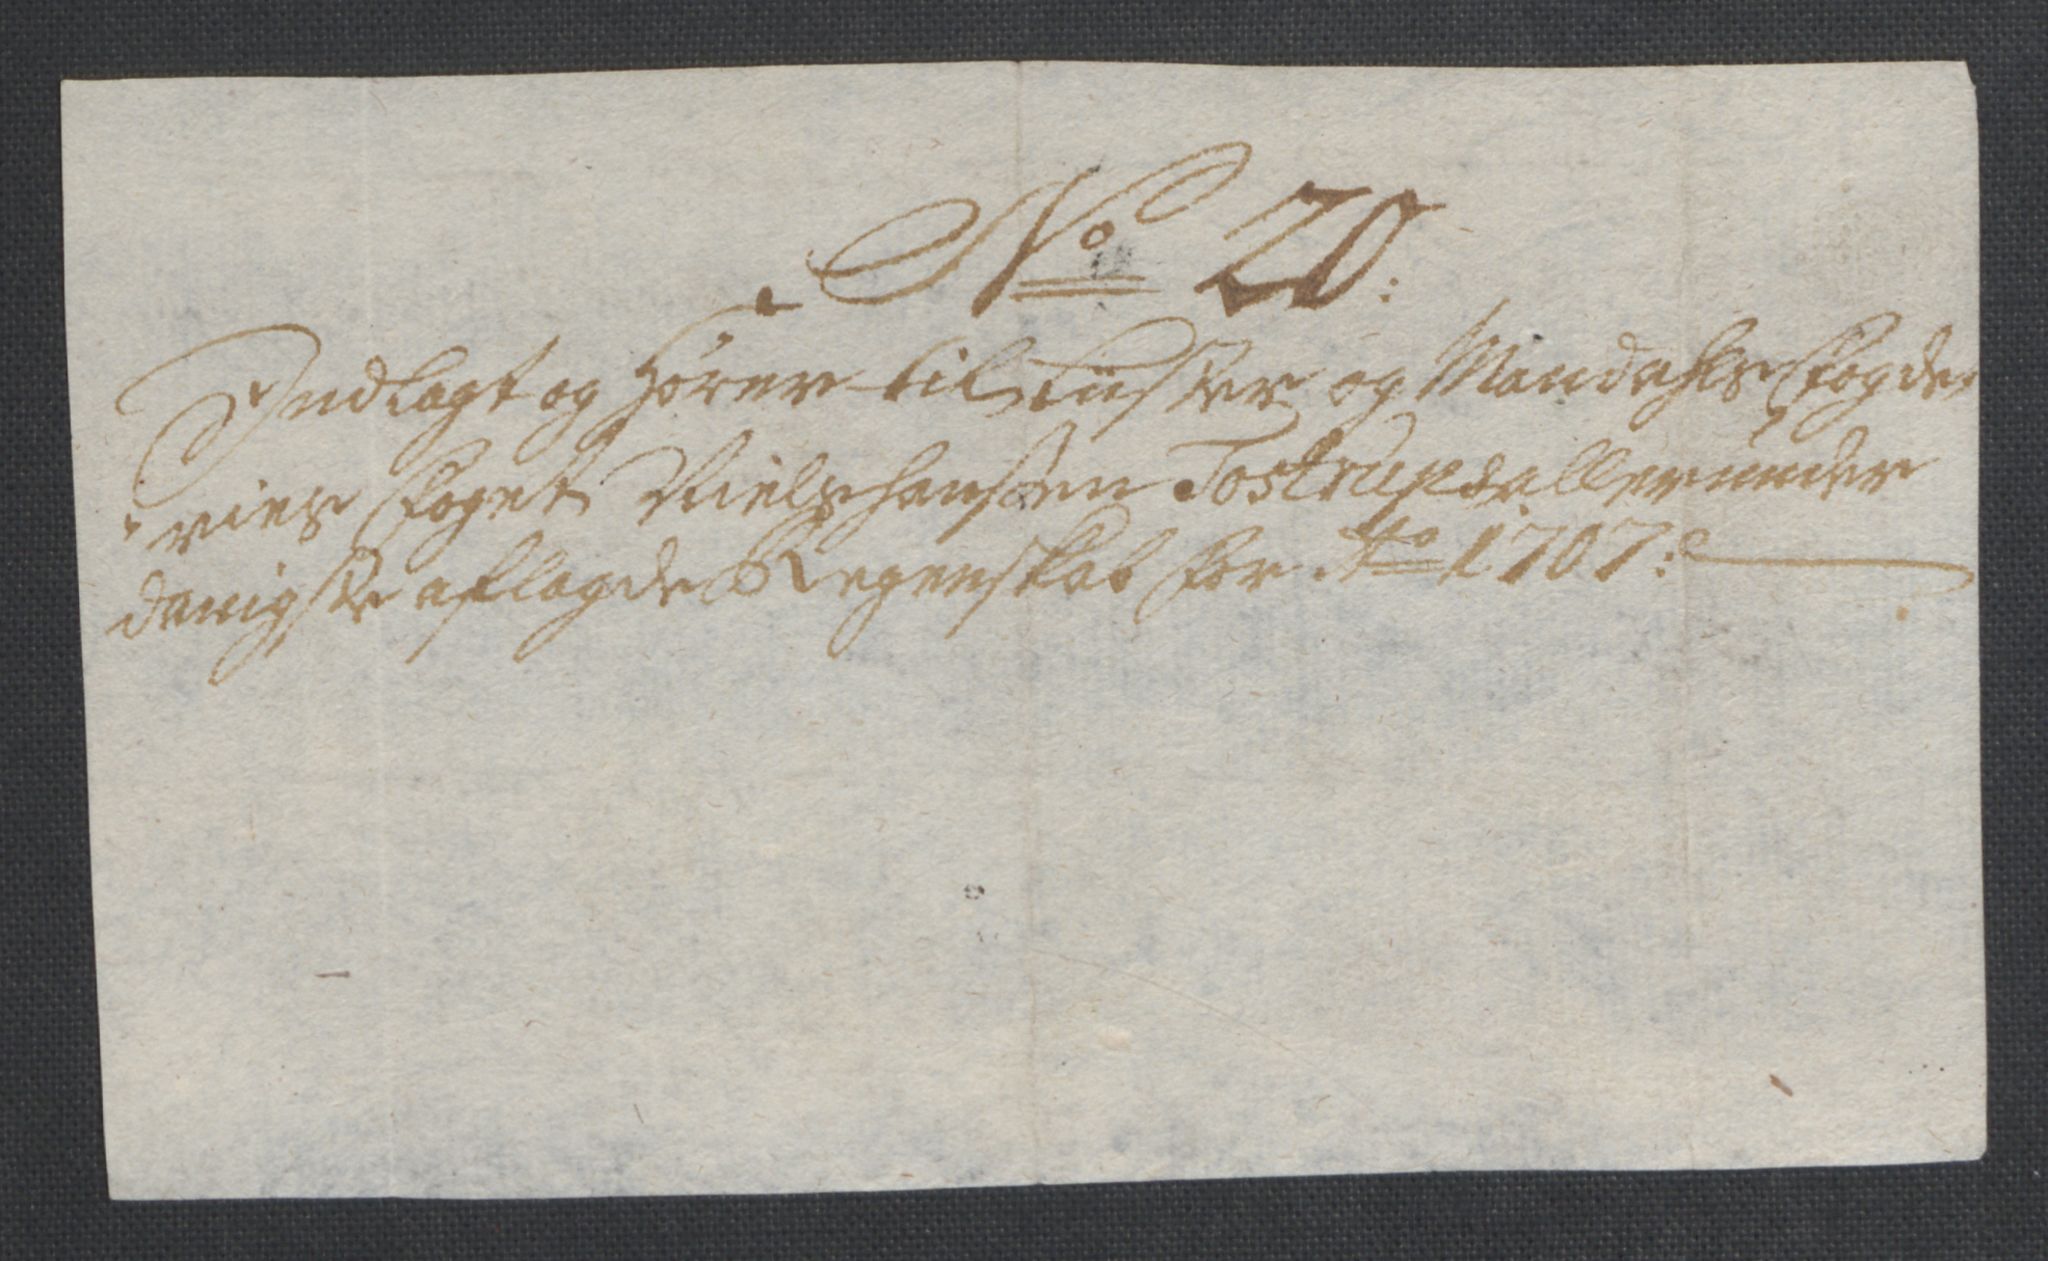 No 20:
Indlagt og hører til Lüster og Mandahls Fogde-
riers Foget Niels Hansøn Tostrups allerunder
danigste aflagde Regenskab for Ao 1707: